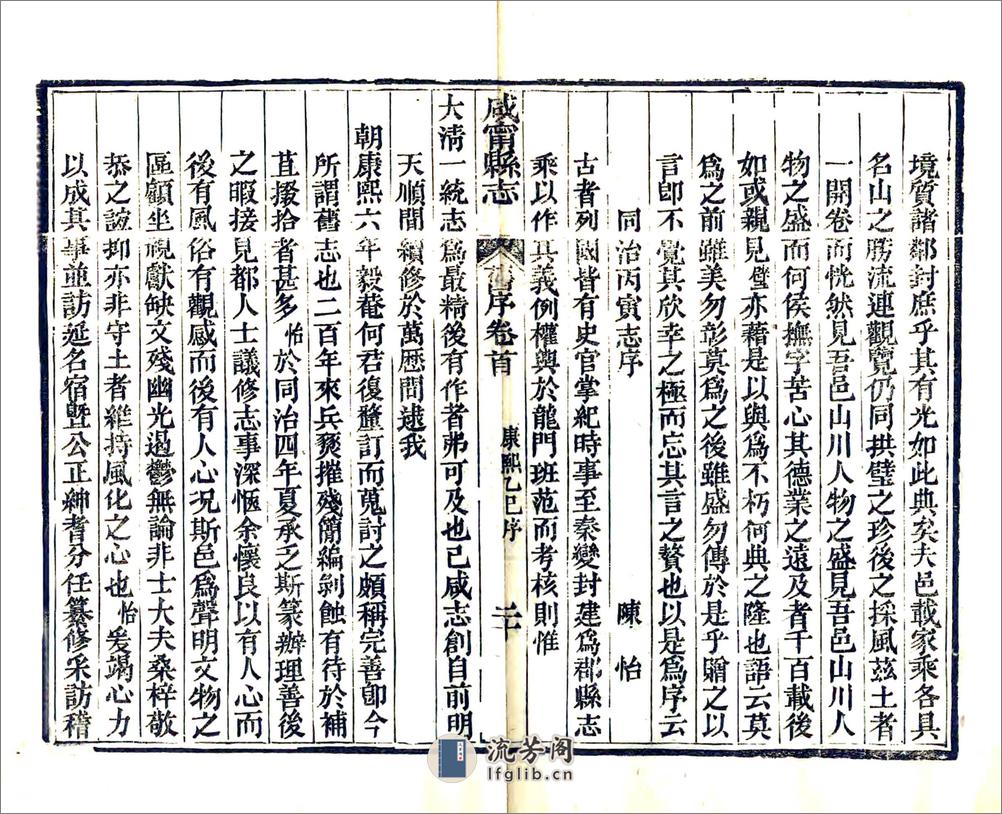 境質諸鄰封庶乎其有光如此典矣夫邑載家乘各具
名山之勝流連觀覽仍同拱璧之珍後之採風茲土者
一開卷而恍然見吾邑山川人物之盛見吾邑山川人
物之盛而何侯撫字苦心其德業之遠及者千百載後
如或親見璧亦藉是以與爲不朽何典之隆也語云莫
爲之前雖美勿彰莫爲之後雖盛勿傳於是乎贈之以
言卽不覺其欣幸之極而忘其言之贅也以是爲序云
同治丙寅志序　陳怡
古者列國皆有史官掌紀時事至秦變封建爲郡縣志
乘以作其義例權輿於龍門班范而考核則惟
咸甯縣志　舊序卷首　康熙乙巳序　二十
大淸一統志爲最精後有作者弗可及也已咸志創自前明
天順間續修於萬歷間逮我
朝康熙六年毅菴何君復釐訂而蒐討之頗稱完善卽今
所謂舊志也二百年來兵燹摧殘簡編剝蝕有待於補
苴掇拾者甚多怡於同治四年夏承乏斯篆辦理善後
之暇接見都人士議修志事深愜余懷良以有人心而
後有風俗有觀感而後有人心况斯邑爲聲明文物之
區顧坐視獻缺文殘幽光過鬱無論非士大夫桑梓敬
恭之誼抑亦非守土者維持風化之心也怡爰竭心力
以成其事並訪延名宿暨公正紳耆分任纂修采訪稽
流芳阁
lfglib.cn